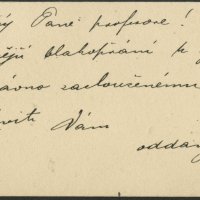 ý Pane profesore!
ější blahopřání k j
ávno zaslouženému
Vám
oddan